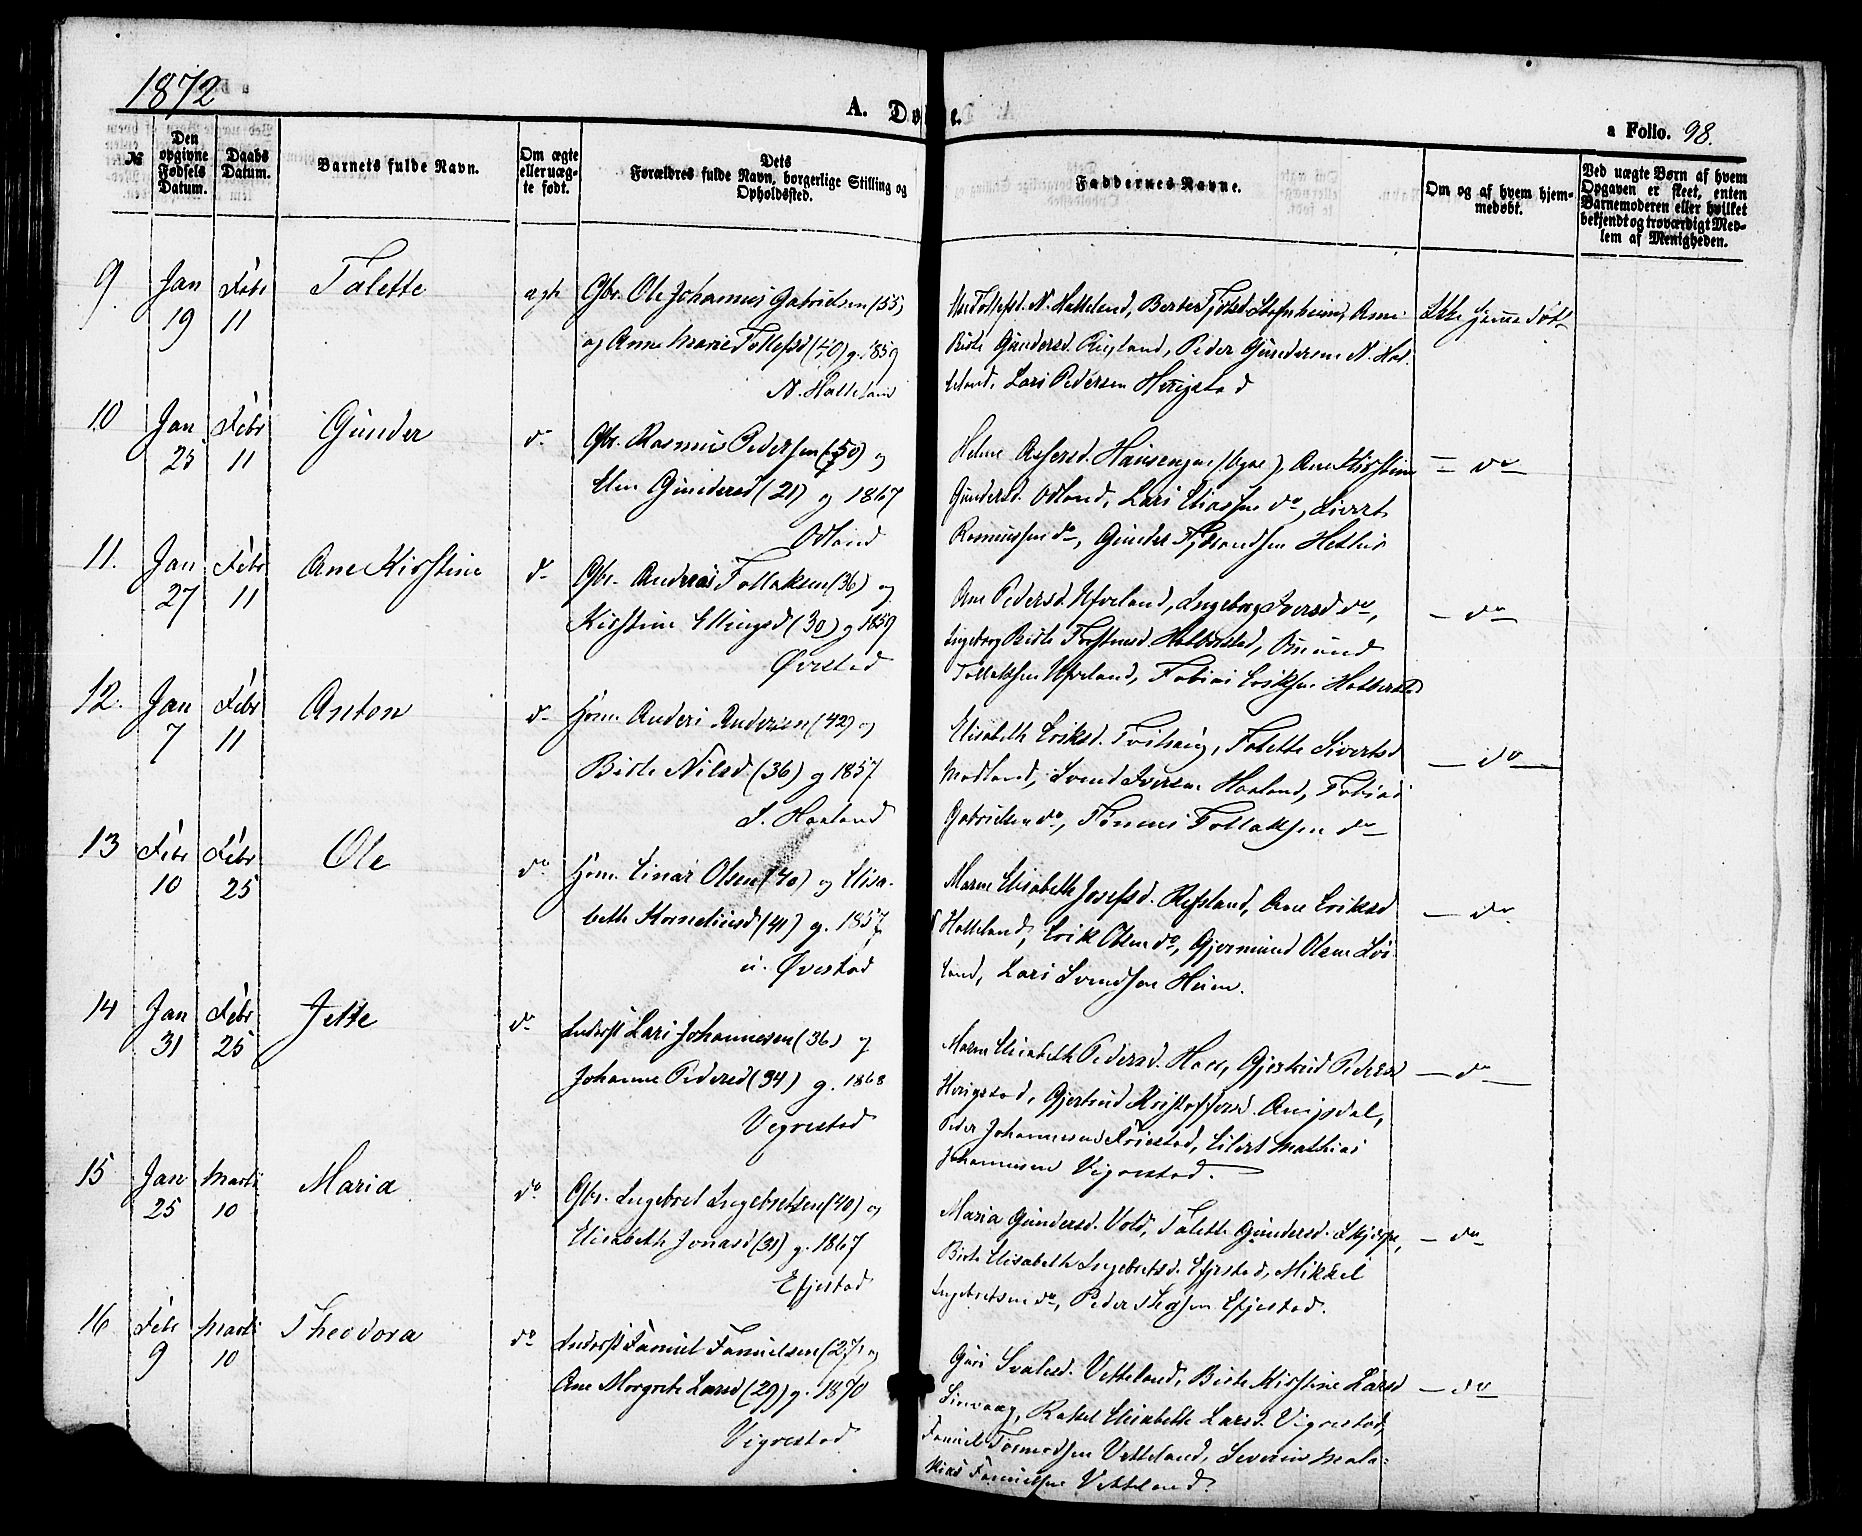 1872
A. Døbte.
a Folio. 98.
№
Den opgivne Fødsels Datum.
Daabs Datum.
Barnets fulde Navn.
Om ægte eller uægte født.
Dets Forældres fulde Navn, borgerlige Stilling og Opholdssted.
Faddernes Navne.
Om og af hvem hjemmedøbt.
Ved uægte Børn af hvem Opgaven er skeet, enten Barnemoderen eller hvilket bekjendt og troværdigt Medlem af Menigheden.
9. Jan 19 Febr 11 Talette ægte Gbr. Ole Johannes Gabrielsen (55)
og Anne Marie Tollefsd (40) g. 1859
N. Hatteland
Tollefsd. N. Hatteland, Ane
Birte Gundersd. Peder Gundersen N. Hat-
teland, Lars Pedersen Herigstad
Ikke hjemmedøbt
10 Jan 25 Febr 11 Gunder do Gbr. Rasmus Pedersen (50) og
Elen Gundersd (21) g 1867
Odland
Helene Ane Kirstine
Gundersd. Odland, Lars Eliassen do, Sivert
Rasmussen do, Gunder
do
11. Jan 27 Febr 11 Ane Kirstine do Gbr. Andreas Tollaksen (36) og
Kirstine Ellingsd (30) g 1859
Øvrestad
Ane Pedersd. Ueland, Ingeborg Iversd do,
Ingeborg Birte
Tollaksen Ueland, Tobias Eriksen
do
12. Jan 7 Febr 11 Anton do Hsm. Anders Andersen (42) og
Birte Nilsd. (36) g 1857
S. Haaland
Elisabeth Eriksd. Talette Sivertsd
Modland, Svend Iversen Haaland, Tobias
Gabrielsen do, Tønnes Tollaksen do
do
13 Febr 10 Febr 25 Ole do Hsm. Einar Olsen (40) og Elisa-
beth Korneliusd (41) g. 1857
u. Øvrestad
Maren Elisabeth Josefsd. Refsland, Ane Eriksd
Hatteland, Erik Olsen do, Gjermund Olsen
land, Lars Svendsen
do
14 Jan 31 Febr 25 Jette do Inderst Lars Johannesen (36) og
Johanne Pedersd (34) g. 1868
Vigrestad
Maren Elisabeth Pedersd. Gjertrud Pedersd
Herigstad, Gjertrud Kristoffersd.
Peder Johannesen Eilert Mathias
Johannesen Vigrestad.
do
15 Jan 25 Marts 10 Maria do Gbr. Ingebret Ingebretsen (40) og
Elisabeth Jonasd (31) g. 1867
Efjestad
Maria Gundersd. Vold, Talette Gundersd.
Birte Elisabeth Ingebretsd. Efjestad, Mikkel
Ingebretsen do, Peder Efjestad.
do
16 Febr 9 Marts 10 Theodora do Inderst Samuel Samuelsen (27) og
Ane Margrete Larsd (29) g. 1870
Vigrestad
Guri Vetteland, Birte Kirstine Larsd
Rakel Elisabeth Larsd. Vigrestad,
Samuel Tormodsen Vetteland, Severin Mala-
kias Samuelsen Vetteland.
do